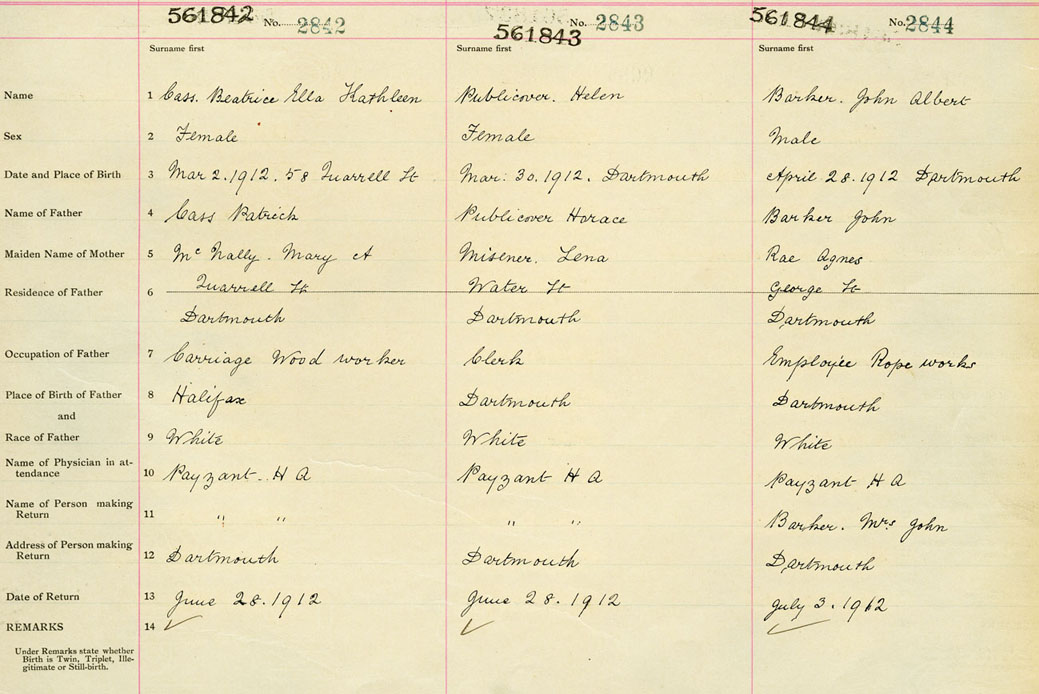 561842 No. 2842 No. 2843 561844 No. 2844
561843
Surname first Surname first Surname first
Name 1 Cass. Beatrice Ella Kathleen Publicover. Helen Barker. John Albert
Sex 2 Female Female Male
Date and Place of Birth 3 Mar 2. 1912. 58 Quarrell St Mar. 30. 1912. Dartmouth April 28. 1912 Dartmouth
Name of Father 4 Cass Patrick Publicover Horace Barker John
Maiden Name of Mother 5 Mc Nally. Mary A Misener. Lena Rae Agnes
Residence of Father 6 Quarrell St Water St George St
Dartmouth Dartmouth Dartmouth
Occupation of Father 7 Carriage Wood worker Clerk Employee Rope works
Place of Birth of Father 8 Halifax Dartmouth Dartmouth
and
Race of Father 9 White White White
Name of Physician in at-
tendance 10 Payzant. H A Payzant H A Payzant H A
Name of Person making
Return 11 " " " " Barker. Mrs John
Address of Person making
Return 12 Dartmouth Dartmouth Dartmouth
Date of Return 13 June 28. 1912 June 28. 1912 July 3. 1912
REMARKS 14 ✓ ✓ ✓
Under Remarks state whether
Birth is Twin, Triplet, Ille-
gitimate or Still-birth.